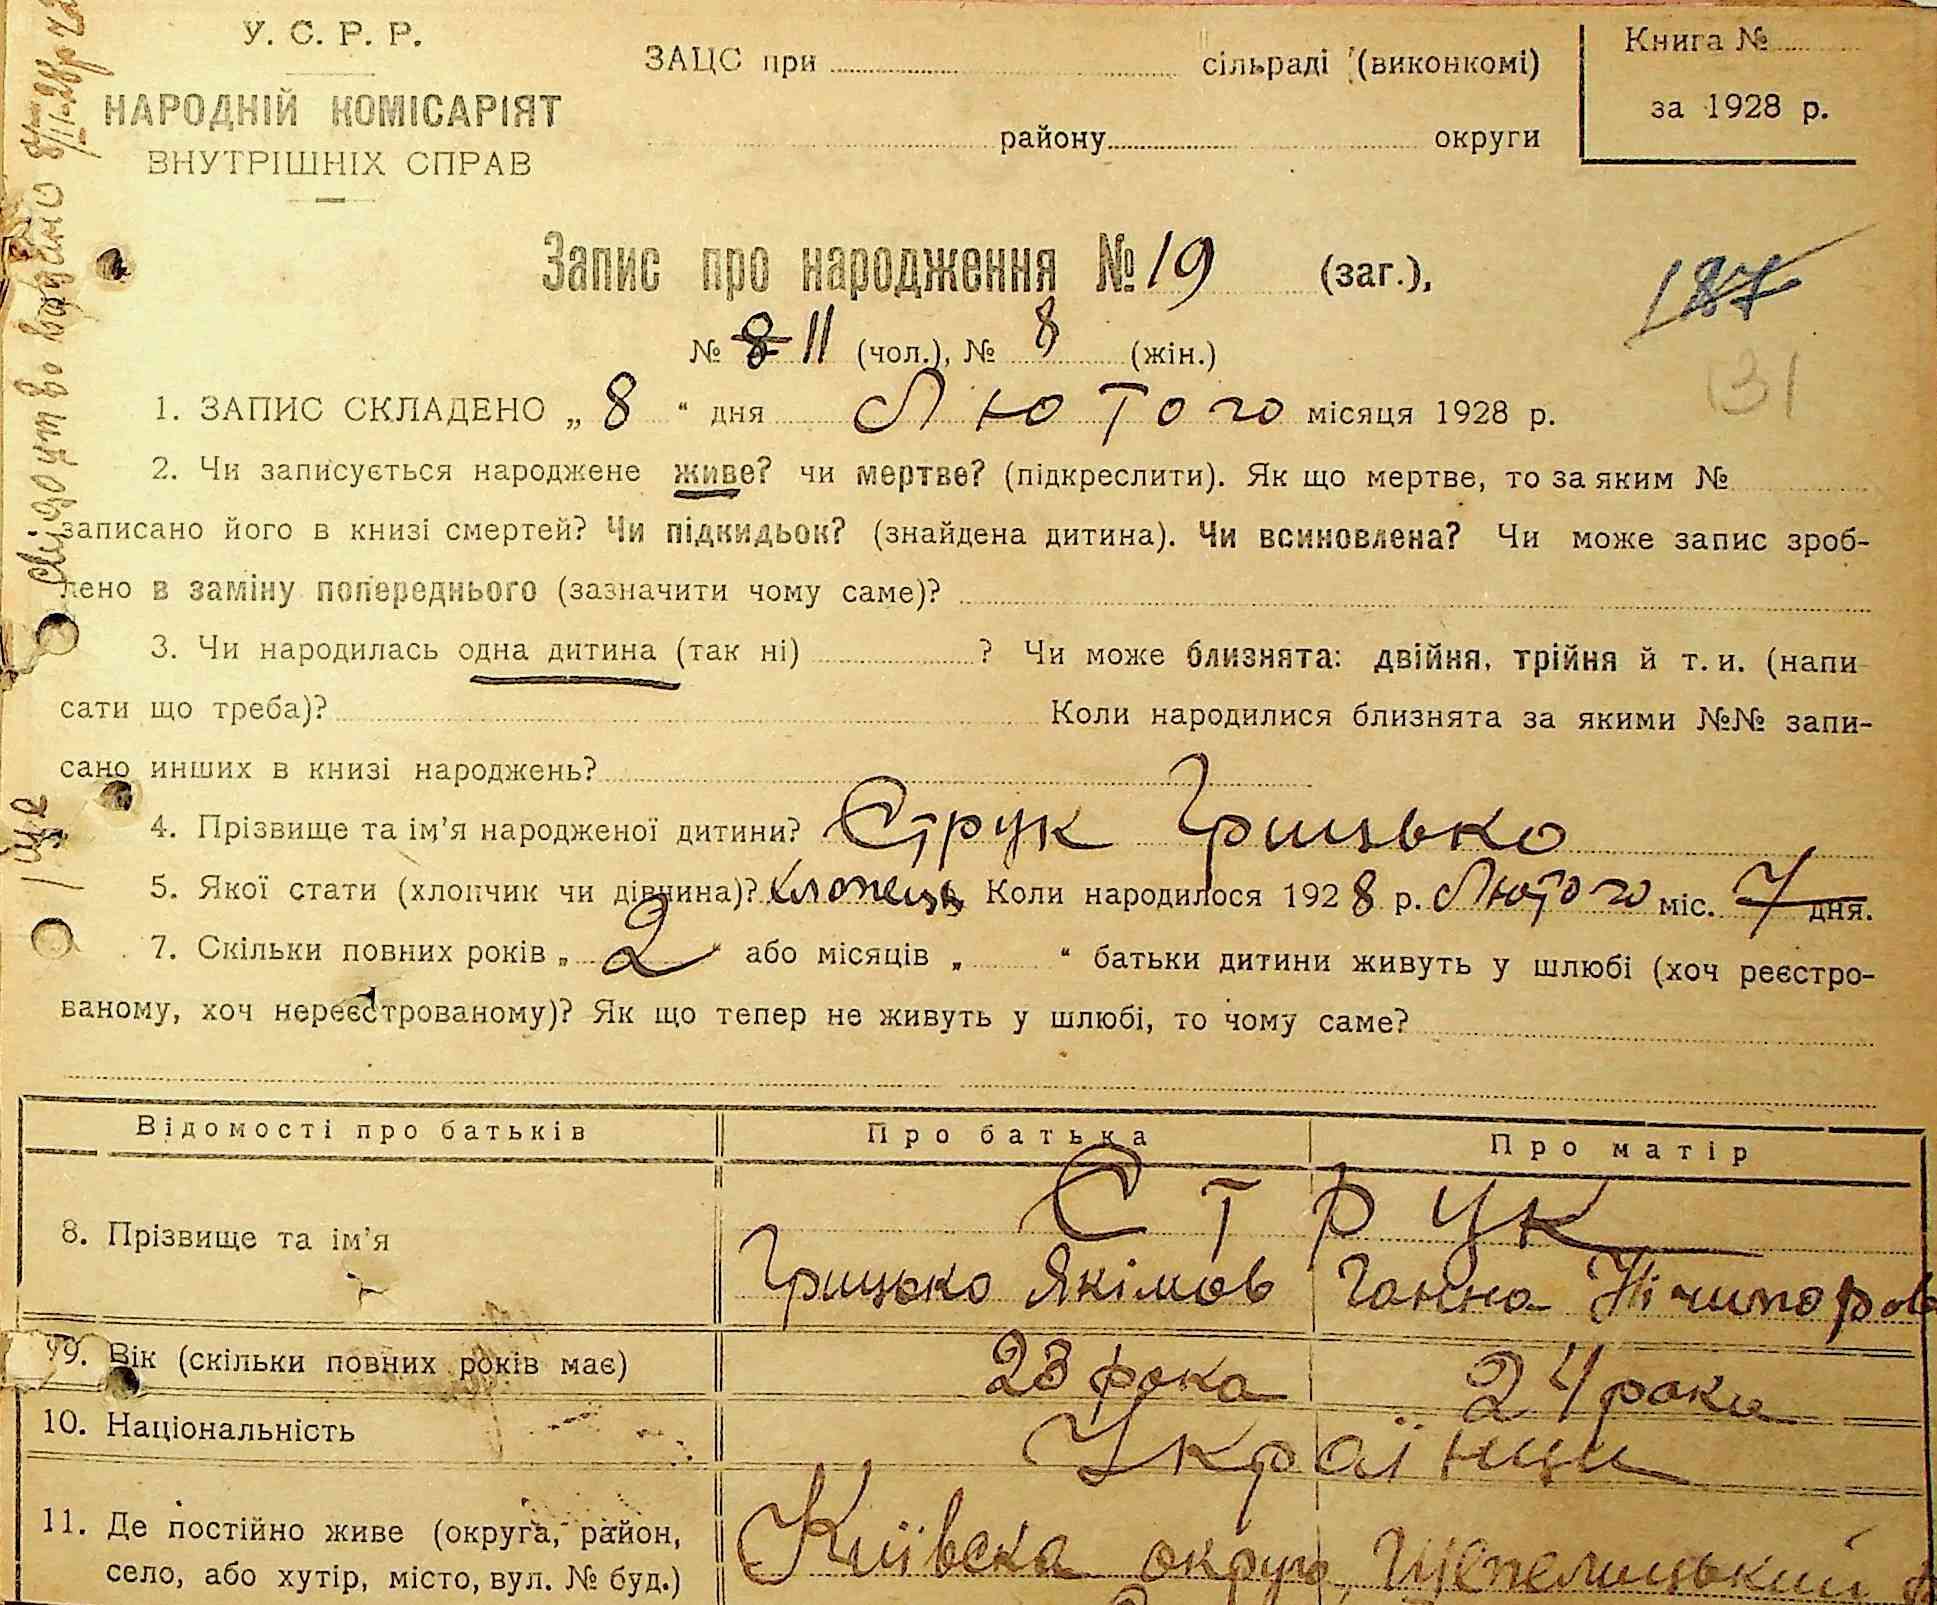 У. С. Р. Р.
НАРОДНІЙ КОМІСАРІЯТ
ВНУТРІШНІХ СПРАВ
ЗАЦС при сільраді (виконкомі)
району округи
Книга №
за 1928 р.
Запис про народження № 19 (заг.),
187
№ 8 11 (чол.), № 8 (жін.)
131
1. ЗАПИС СКЛАДЕНО „ 8 “ дня Лютого місяця 1928 р.
2. Чи записується народжене живе? чи мертве? (підкреслити). Як що мертве, то за яким №
записано його в книзі смертей? Чи підкидьок? (знайдена дитина). Чи всиновлена? Чи може запис зроб-
лено в заміну попереднього (зазначити чому саме)?
3. Чи народилась одна дитина (так ні) ? Чи може близнята: двійня, трійня й т. и. (напи
сати що треба)? Коли народилися близнята за якими №№ запи-
сано инших в книзі народжень?
4. Прізвище та ім’я народженої дитини? Струк Грицько
5. Якої стати (хлопчик чи дівчина)? хлопець Коли народилося 1928 р. Лютого міс. 7 дня.
7. Скільки повних років „ 2 “ або місяців „ “ батьки дитини живуть у шлюбі (хоч реєстро-
ваному, хоч нереєстрованому)? Як що тепер не живуть у шлюбі, то чому саме?
Відомості про батьків Про батька Про матір
8. Прізвище та ім’я Струк
Грицько Якімов Ганна Нічипоров
9. Вік (скільки повних років має) 23 рока 24 роки
10. Національність Українци
11. Де постійно живе (округа, район,
село, або хутір, місто, вул. № буд.)
Київська округа, Шепелицький
Свідоцтво видано